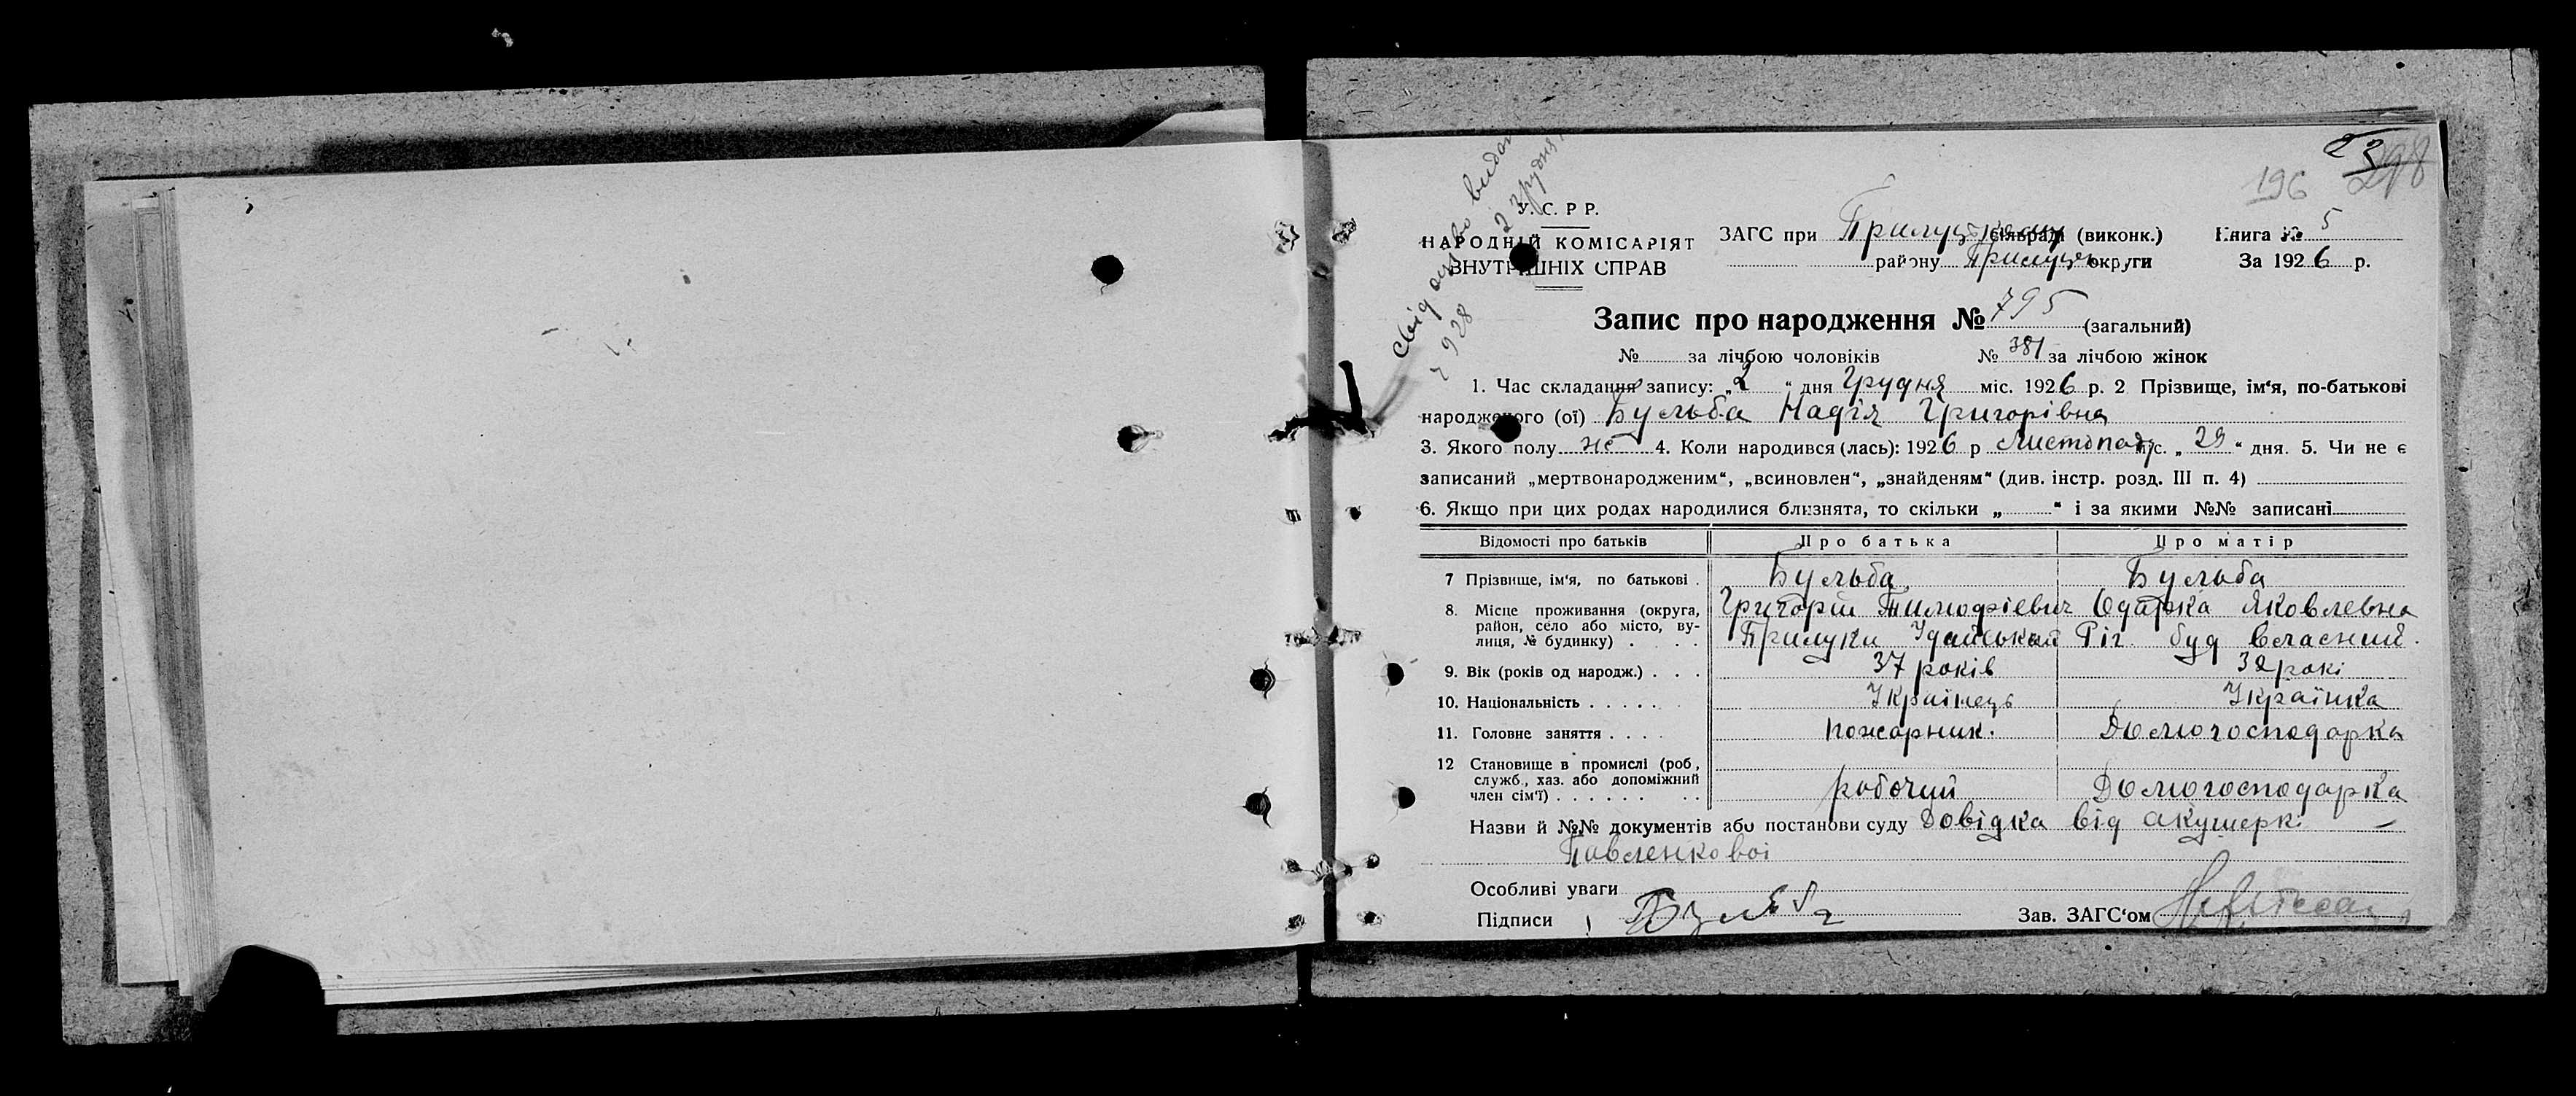 23
196 298
Свідоцтво видано
2 грудня
1928
У. С. Р Р.
НАРОДНІЙ КОМІСАРІЯТ
ВНУТРІШНІХ СПРАВ
ЗАГС при сільраді (виконк.) Книга № 5
району Прилуцьк округи За 1926 р.
Запис про народження № 795 (загальний)
№ за лічбою чоловіків № 381 за лічбою жінок
1. Час складання запису: „2“ дня Грудня міс. 1926 р. 2 Прізвище, ім‘я, по-батькові
народженого (ої) Бульба Надія Григорівна
3. Якого полу ж 4. Коли народився (лась): 1926 р Листопад міс. „29“ дня. 5. Чи не є
записаний „мертвонародженим“, „всиновлен“, „знайденям“ (див. інстр. розд. III п. 4)
6. Якщо при цих родах народилися близнята, то скільки „ “ і за якими №№ записані
Відомості про батьків Про батька Про матір
7 Прізвище, ім‘я, по батькові . Бульба Бульба
Григорій Тимофієвич Одарка Яковлевна
8. Місце проживання (округа,
район, село або місто, ву-
лиця, № будинку) . . . . Прилуки Удайський Ріг. буд власний.
9. Вік (років од народж.) . . . 37 років 32 рокі
10. Національність . . . . . Українець Українка
11. Головне заняття . . . . пожарник. Домогосподарка
12 Становище в промислі (роб,
служб., хаз. або допоміжний
член сім‘ї) . . . . . . . . робочий Домогосподарка
Назви й №№ документів або постанови суду Довідка від акушерки —
Павленкової
Особливі уваги
Підписи Бульба Зав. ЗАГС‘ом